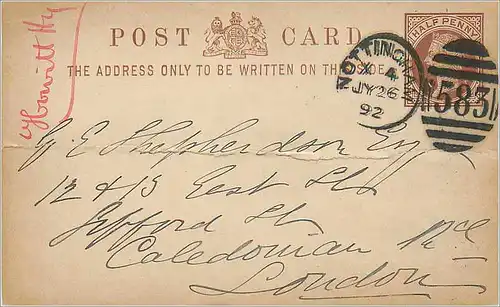 POST CARD
THE ADDRESS ONLY TO BE WRITTEN ON THIS SIDE
HALF PENNY
NOTTINGHAM
X 4
JY 26
92
583
G E Shepherdson Esq
12 & 13 East St
Gifford St
Caledonian Rd
London